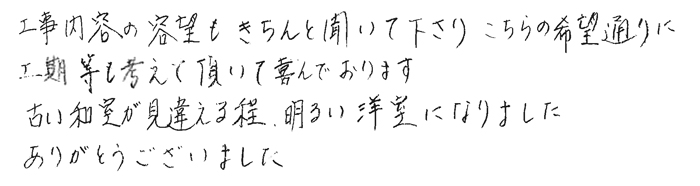 工事内容の容望もきちんと聞いて下さり こちらの希望通りに
工期等も考えて頂いて喜んでおります
古い和室が見違える程、明るい洋室になりました
ありがとうございました